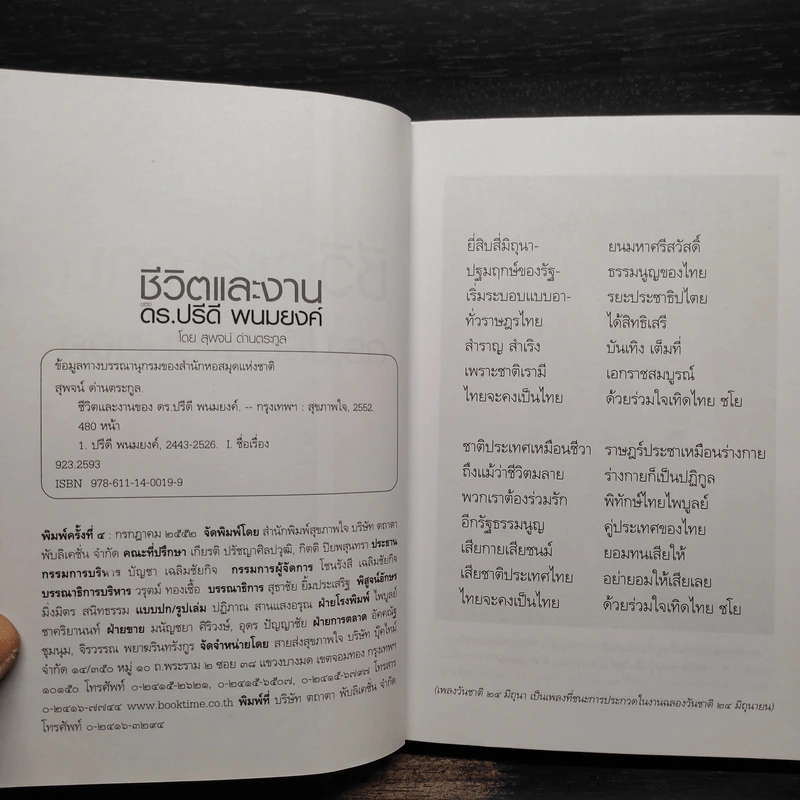 ชีวิตและงาน
ของ
ดร.ปรีดี พนมยงค์
โดย สุพจน์ ด่านตระกูล
ข้อมูลทางบรรณานุกรมของสำนักหอสมุดแห่งชาติ
สุพจน์ ด่านตระกูล.
ชีวิตและงานของ ดร.ปรีดี พนมยงค์. -- กรุงเทพฯ : สุขภาพใจ, 2552.
480 หน้า
1. ปรีดี พนมยงค์, 2443-2526. I. ชื่อเรื่อง
923.2593
ISBN 978-611-14-0019-9
พิมพ์ครั้งที่ ๔ : กรกฎาคม ๒๕๕๒ จัดพิมพ์โดย สำนักพิมพ์สุขภาพใจ บริษัท ตถาตา
พับลิเคชั่น จำกัด คณะที่ปรึกษา เกียรติ ปรัชญาศิลปวุฒิ, กิตติ ปิยพสุนทรา ประธาน
กรรมการบริหาร บัญชา เฉลิมชัยกิจ กรรมการผู้จัดการ โชนรังสี เฉลิมชัยกิจ
บรรณาธิการบริหาร วรุตม์ ทองเชื้อ บรรณาธิการ สุธาชัย ยิ้มประเสริฐ พิสูจน์อักษร
มิ่งมิตร สนิทธรรม แบบปก/รูปเล่ม ปฏิภาณ สานแสงอรุณ ฝ่ายโรงพิมพ์ ไพบูลย์
ชาคริยานนท์ ฝ่ายขาย มนัญชยา ศิริวงษ์, อุดร ปัญญาชัย ฝ่ายการตลาด อัคคณัฐ
ชุมนุม, จิรวรรณ พยาฆรินทรังกูร จัดจำหน่ายโดย สายส่งสุขภาพใจ บริษัท บุ๊คไทม์
จำกัด ๑๔/๓๕๐ หมู่ ๑๐ ถ.พระราม ๒ ซอย ๓๘ แขวงบางมด เขตจอมทอง กรุงเทพฯ
๑๐๑๕๐ โทรศัพท์ ๐-๒๔๑๕-๒๖๒๑, ๐-๒๔๑๕-๖๕๐๗, ๐-๒๔๑๕-๖๗๙๗ โทรสาร
๐-๒๔๑๖-๗๗๔๔ www.booktime.co.th พิมพ์ที่ บริษัท ตถาตา พับลิเคชั่น จำกัด
โทรศัพท์ ๐-๒๔๑๖-๓๒๙๔
ยี่สิบสี่มิถุนา- ยนมหาศรีสวัสดิ์
ปฐมฤกษ์ของรัฐ- ธรรมนูญของไทย
เริ่มระบอบแบบอา- รยะประชาธิปไตย
ทั่วราษฎรไทย ได้สิทธิเสรี
สำราญ สำเริง บันเทิง เต็มที่
เพราะชาติเรามี เอกราชสมบูรณ์
ไทยจะคงเป็นไทย ด้วยร่วมใจเทิดไทย ชโย
ชาติประเทศเหมือนชีวา ราษฎร์ประชาเหมือนร่างกาย
ถึงแม้ว่าชีวิตมลาย ร่างกายก็เป็นปฏิกูล
พวกเราต้องร่วมรัก พิทักษ์ไทยไพบูลย์
อีกรัฐธรรมนูญ คู่ประเทศของไทย
เสียกายเสียชนม์ ยอมทนเสียให้
เสียชาติประเทศไทย อย่ายอมให้เสียเลย
ไทยจะคงเป็นไทย ด้วยร่วมใจเทิดไทย ชโย
(เพลงวันชาติ ๒๔ มิถุนา เป็นเพลงที่ชนะการประกวดในงานฉลองวันชาติ ๒๔ มิถุนายน)